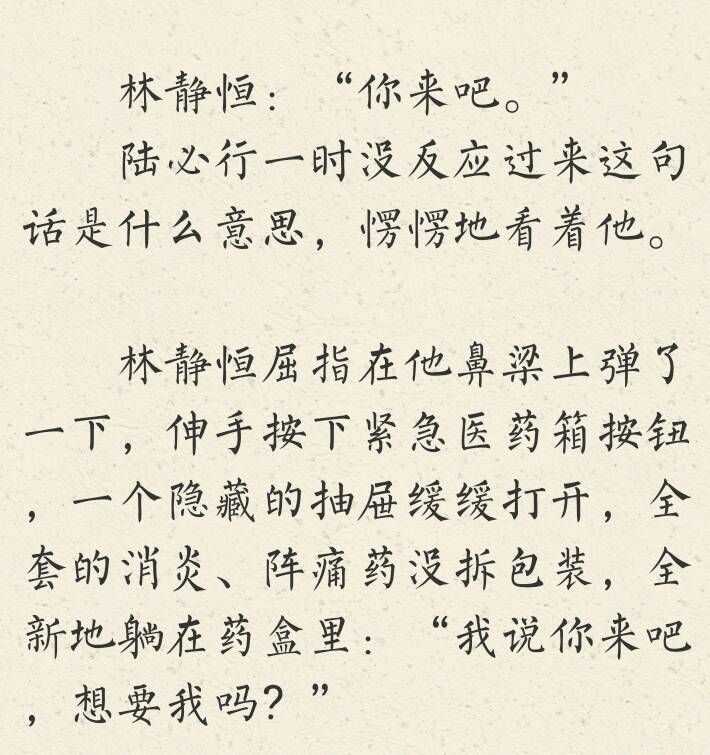 林静恒：“你来吧。”
陆必行一时没反应过来这句
话是什么意思，愣愣地看着他。
林静恒屈指在他鼻梁上弹了
一下，伸手按下紧急医药箱按钮
，一个隐藏的抽屉缓缓打开，全
套的消炎、阵痛药没拆包装，全
新地躺在药盒里：“我说你来吧
，想要我吗？”